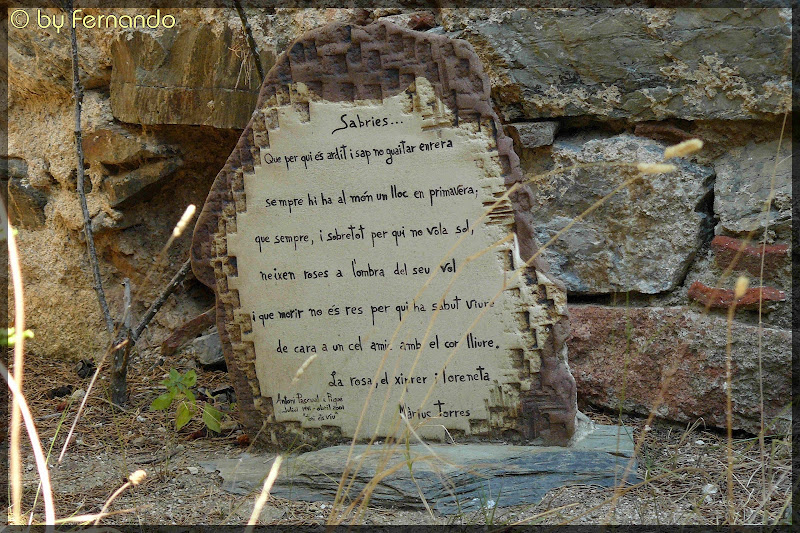 © by Fernando
Sabries...
Que per qui és ardit i sap no guaitar enrera
sempre hi ha al món un lloc en primavera;
que sempre, i sobretot per qui no vola sol,
neixen roses a l'ombra del seu vol
i que morir no és res per qui ha sabut viure
de cara a un cel amic amb el cor lliure.
La rosa, el xiprer i l'oreneta
Màrius Torres
Antoni Pascual i Piqué
abril 2001